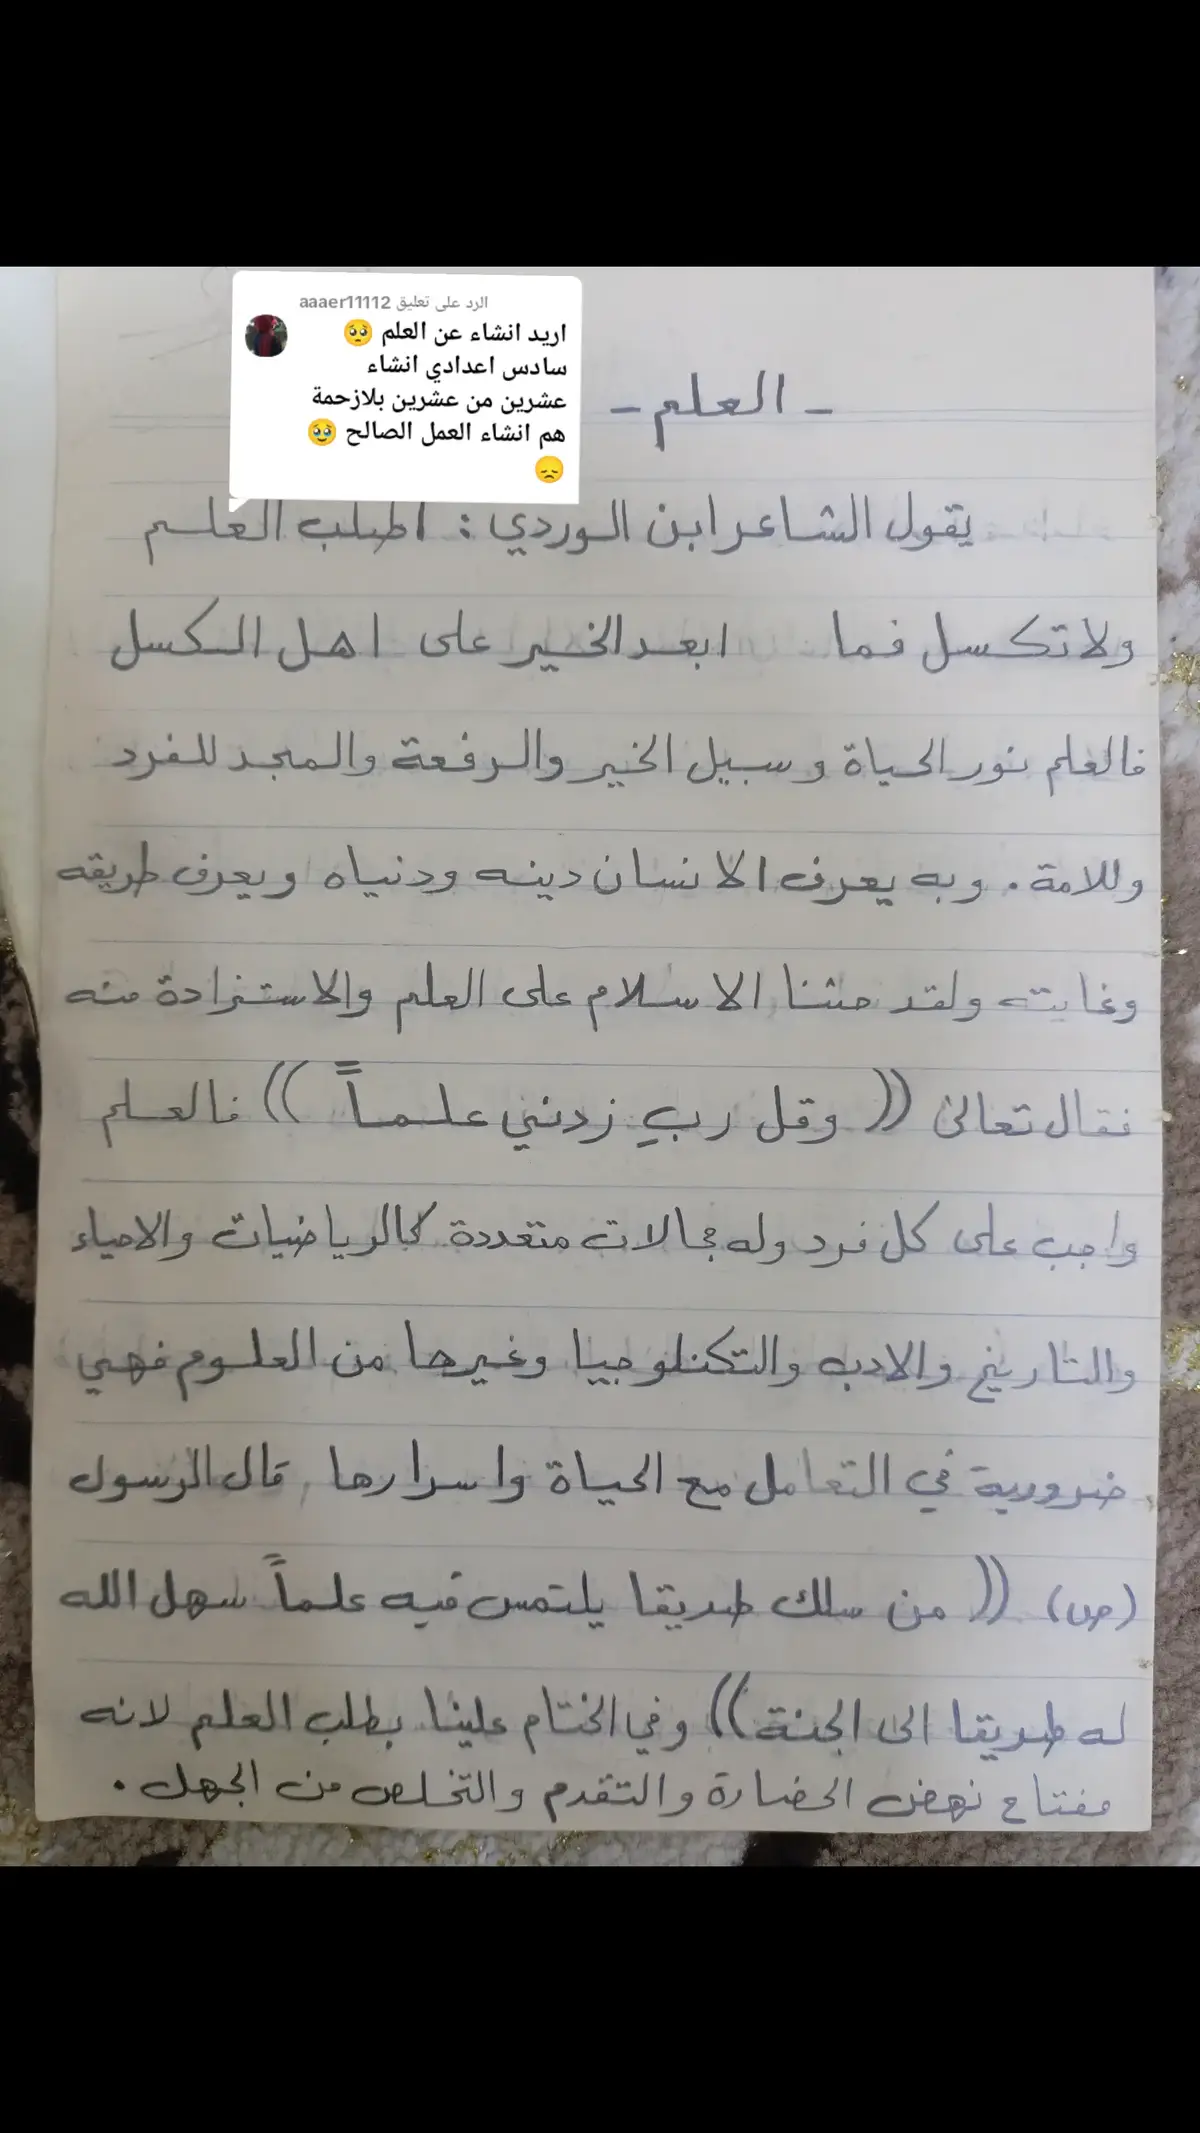 الرد على تعليق aaaer11112
اريد انشاء عن العلم 🥺
سادس اعدادي انشاء
عشرين من عشرين بلازحمة
هم انشاء العمل الصالح 🥹
😞
- العلم -
يقول الشاعر ابن الوردي : اطلب العلم
ولا تكسل فما ابعد الخير على اهل الكسل
فالعلم نور الحياة وسبيل الخير والرفعة والمجد للفرد
وللامة . وبه يعرف الانسان دينه ودنياه ويعرف طريقه
وغايته ولقد حثنا الاسلام على العلم والاستزادة منه
فقال تعالى (( وقل ربِ زدني علماً )) فالعلم
واجب على كل فرد وله مجالات متعددة كالرياضيات والاحياء
والتاريخ والادب والتكنلوجيا وغيرها من العلوم فهي
ضرورية في التعامل مع الحياة واسرارها , قال الرسول
(ص) (( من سلك طريقا يلتمس فيه علماً سهل الله
له طريقا الى الجنة )) وفي الختام علينا بطلب العلم لانه
مفتاح نهض الحضارة والتقدم والتخلص من الجهل .